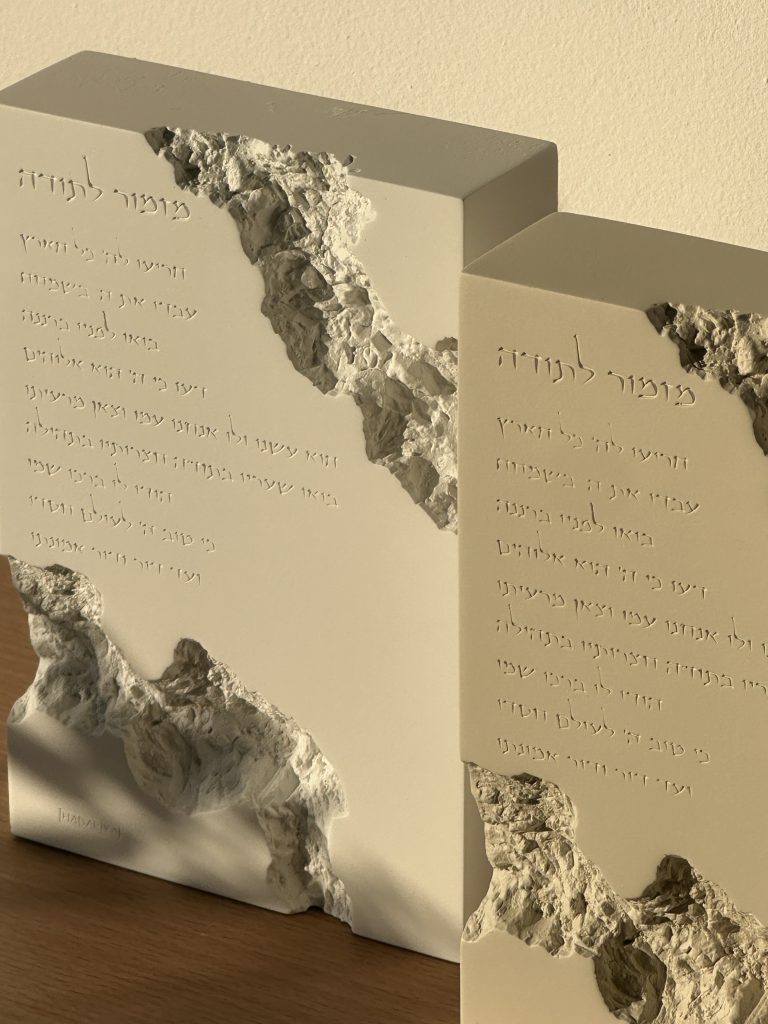 מזמור לתודה
הריעו לה׳ כל הארץ
עבדו את ה׳ בשמחה
בואו לפניו ברננה
דעו כי ה׳ הוא אלוהים
הוא עשנו ולו אנחנו עמו וצאן מרעיתו
בואו שעריו בתודה חצרותיו בתהילה
הודו לו ברכו שמו
כי טוב ה׳ לעולם חסדו
ועד דור ודור אמונתו
מזמור לתודה
הריעו לה׳ כל הארץ
עבדו את ה׳ בשמחה
בואו לפניו ברננה
דעו כי ה׳ הוא אלוהים
ולו אנחנו עמו וצאן מרעיתו
בתודה חצרותיו בתהילה
הודו לו ברכו שמו
כי טוב ה׳ לעולם חסדו
ועד דור ודור אמונתו